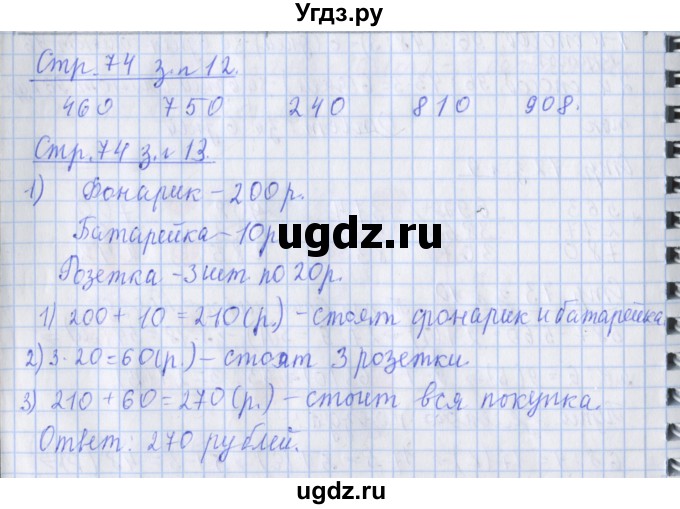 Угдз.ру
Стр. 74 з. № 12.
460 750 240 810 908.
Стр. 74 з. № 13.
1) Фонарик - 200 р.
Батарейка - 10р
ugdz.ru
Розетка - 3 шт по 20р.
1) 200 + 10 = 210 (р.) - стоят фонарик и батарейка
2) 3 · 20 = 60 (р) - стоят 3 розетки
3) 210 + 60 = 270 (р.) - стоит вся покупка.
Ответ: 270 рублей.
ugdz.ru